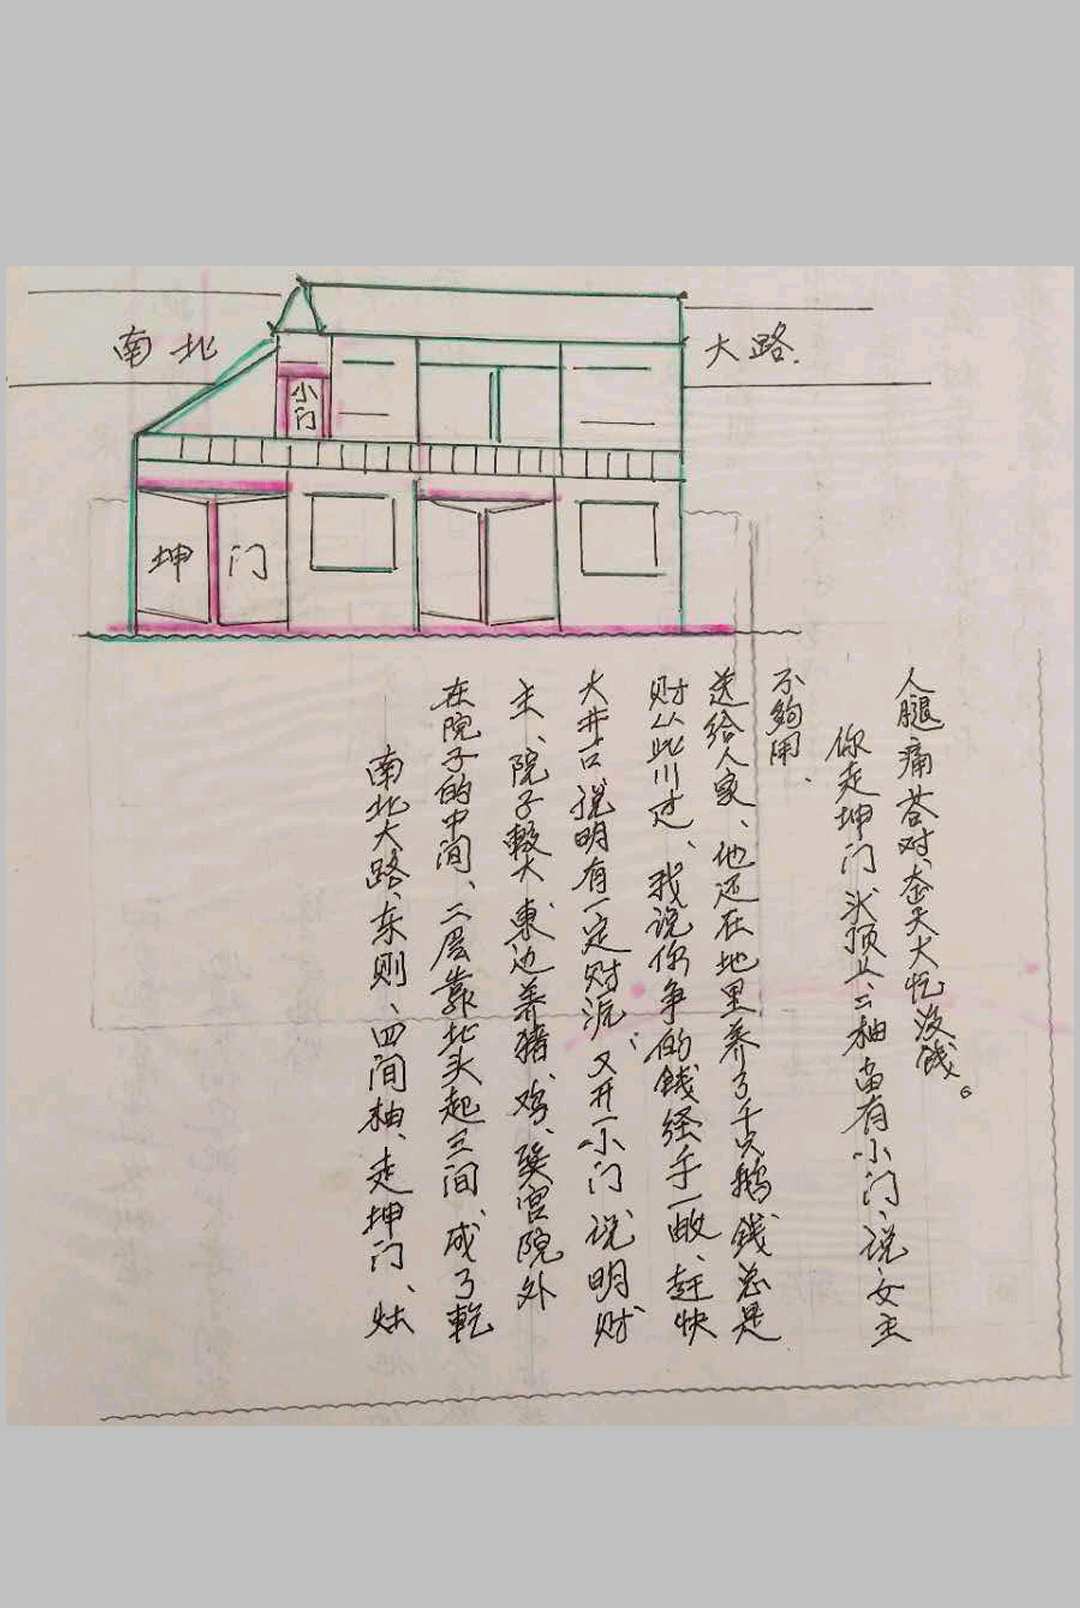 南北
大路.
小门
坤 门
南北大路、东则、四间柚、走坤门、灶
在院子的中间、二层靠北头起三间、成了乾
主、院子較大、東边养猪、鸡、巽宫院外
大井口说明有一定财源、又开一小门说明财
财从此川过、我说你争的钱经手一收、赶快
送给人家、他还在地里养了千只鹅钱总是
不夠用、
你走坤门头顶上二柚留有小门、说女主
人腿痛答对、天大忙没钱。